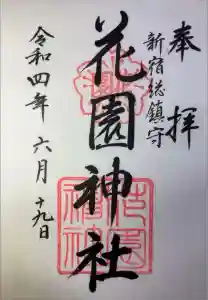 奉拝
新宿総鎮守
花園神社
令和四年六月十九日
花園神社